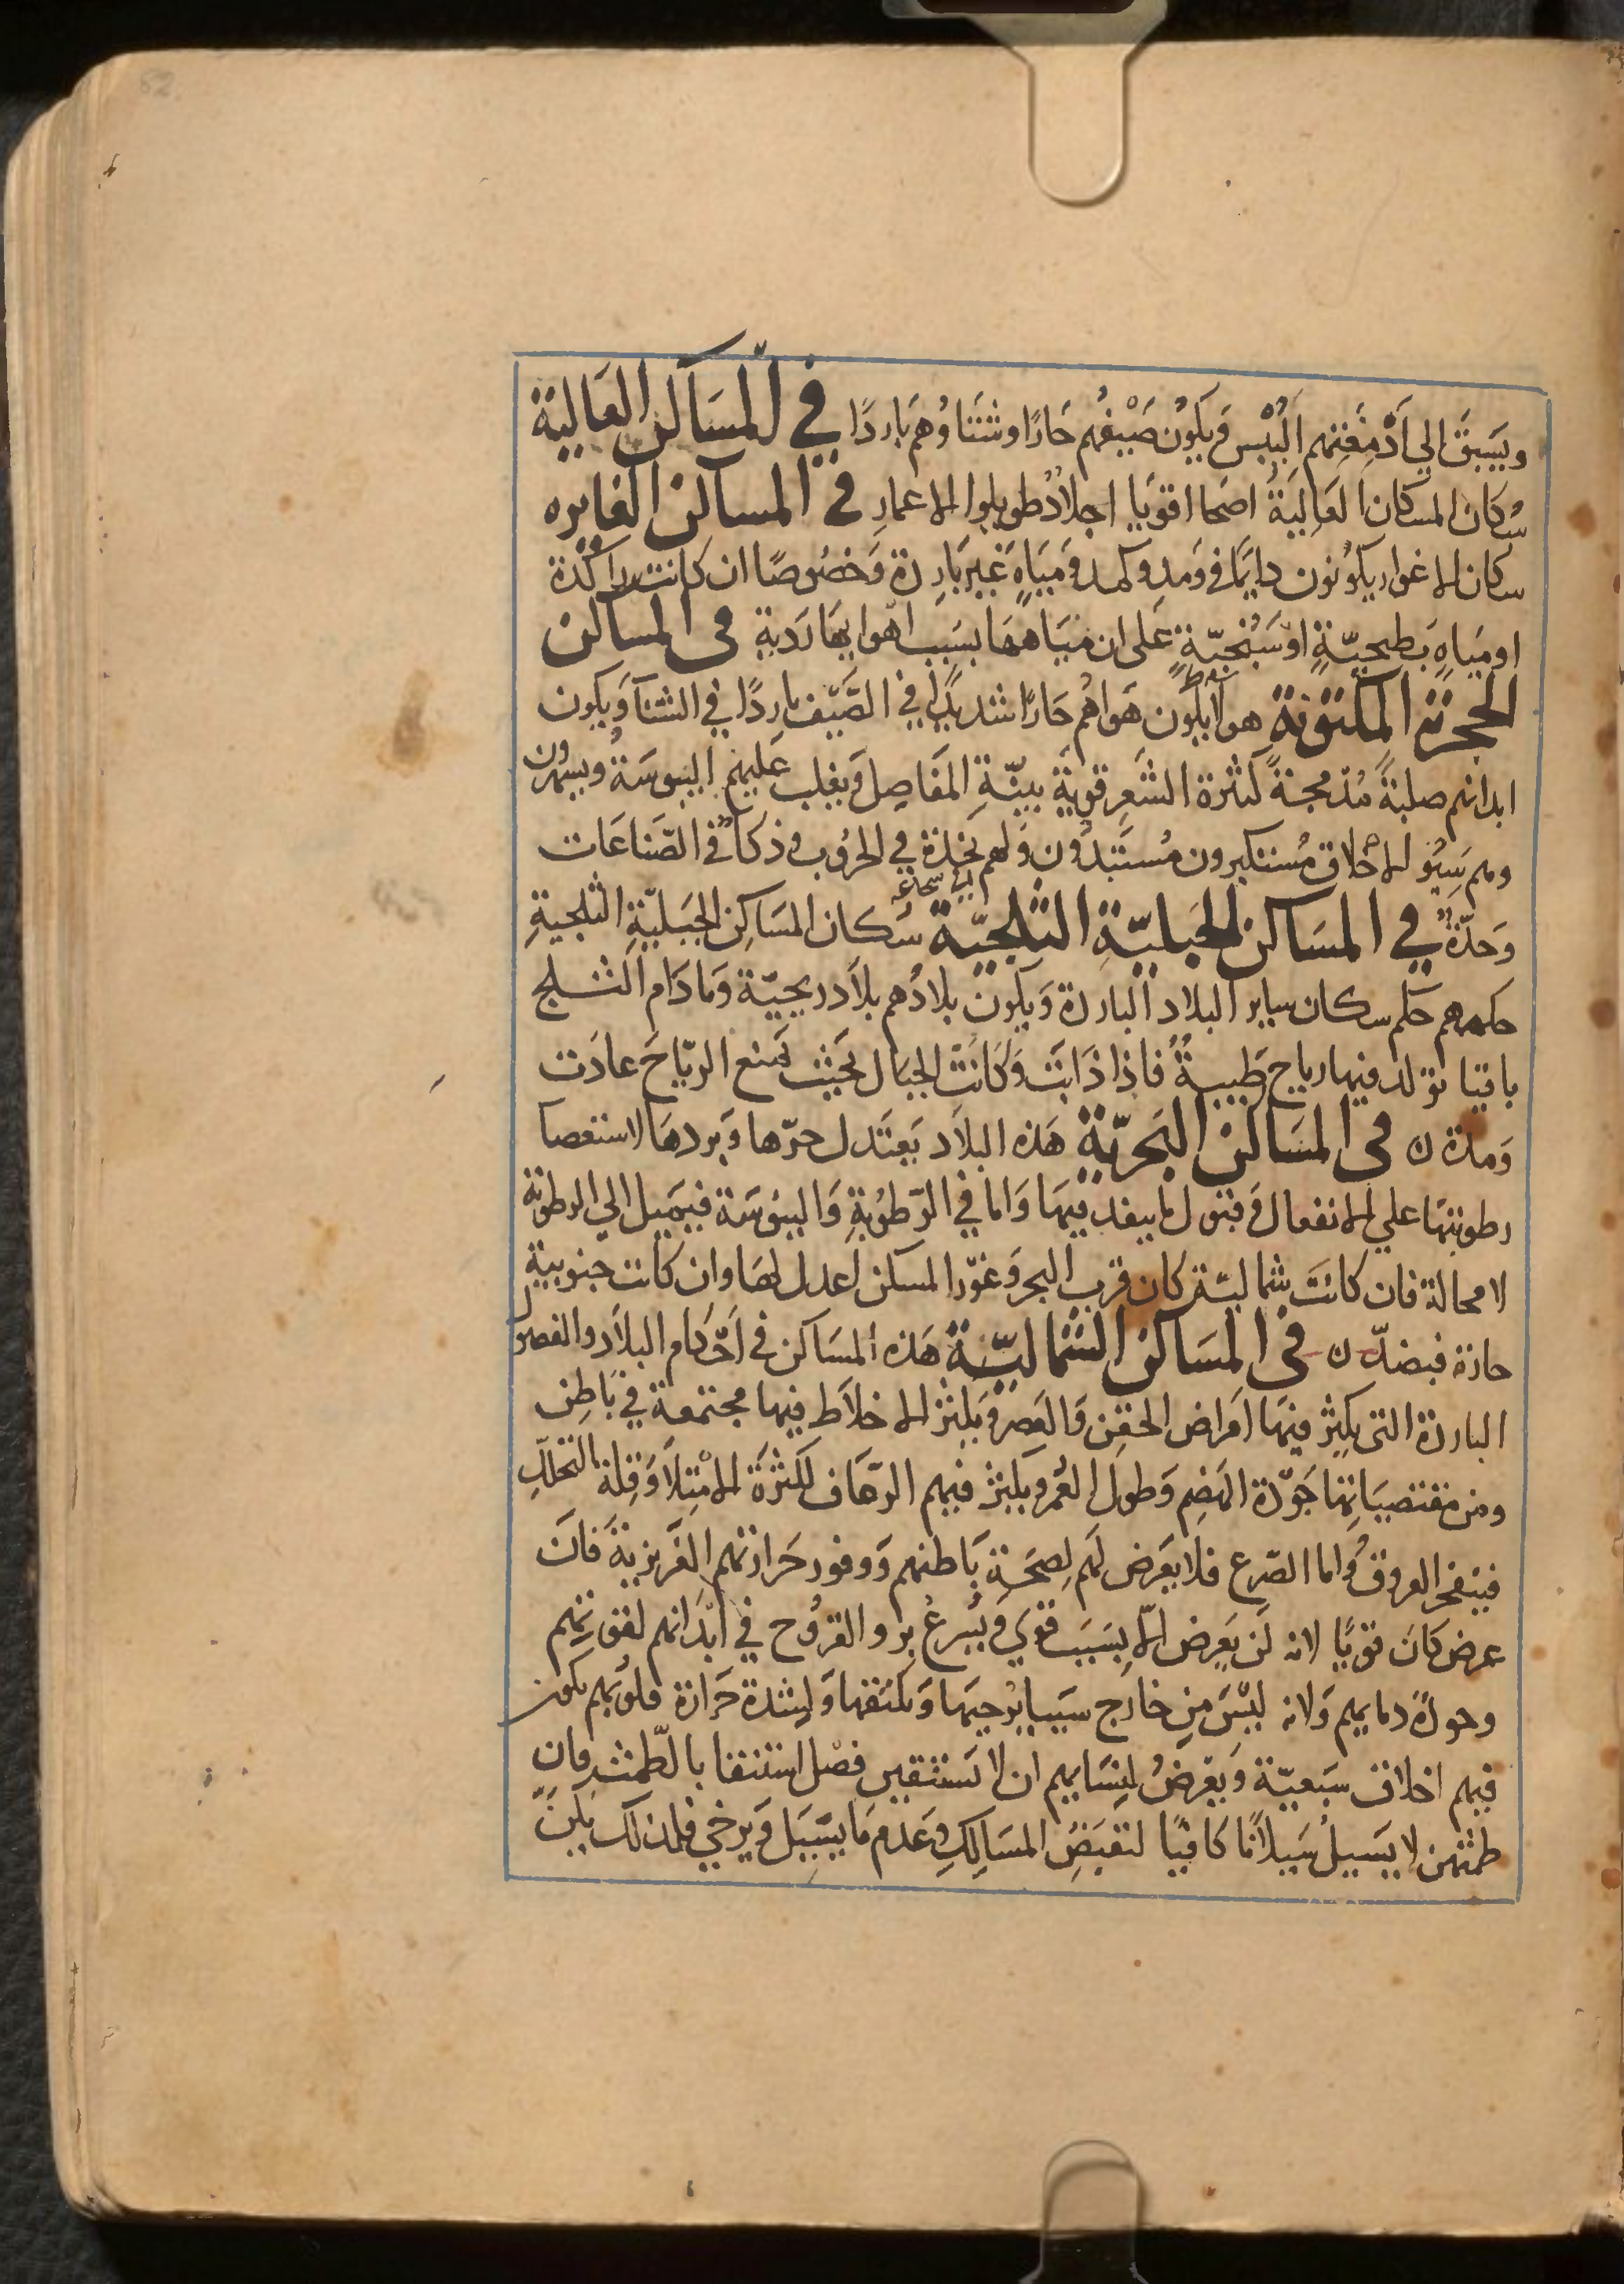 ويسبق الى ادمغتهم اليبس ويكون صيفهم حارا وشتاوهم باردا في المساكن العالية
سكان المساكن العالية اصحا اقويا اجلاد طويلوا الاعمار في المساكن الغايره
سكان الاغوار يكونون دايما في ومد وكمد ومياه غير باردة وخصوصا ان كانت راكدة
او مياه بطيحية او سبخية على ان مياهها بسبب اهوايها ردية في المساكن
الحجرية المكشوفة هولا يكون هواهم حارا شديدا في الصيف باردا في الشتا ويكون
ابدانهم صلبة مدمجة كثرة الشعر قوية بينة المفاصل ويغلب عليهم اليبوسة ويسهرون
وهم سيو الاخلاق مستكبرون مستبدون ولهم نجدة في الحروب وذكا في الصناعات
اي شجاعة
وحدة في المساكن الجبلية الثلجية سكان المساكن الجبلية الثلجية
حكمهم حكم سكان ساير البلاد الباردة ويكون بلادهم بلاد ريحية وما دام الثلج
باقيا تولد فيها رياح طيبة فاذا ذابت وكانت الجبال بحيث تمنع الرياح عادت
ومدة ن في المساكن البحرية هذه البلاد يعتدل حرها وبردها لاستعصا
رطوبتها علي الانفعال وقبول ما ينفد فيها واما في الرطوبة واليبوسة فيميل الي الرطوبة
لا محالة فان كانت شمالية كان قرب البحر وغور المسكن اعدل لها وان كانت جنوبية
حارة فبضد ن في المساكن الشمالية هذه المساكن في احكام البلاد والفصول
الباردة التى يكثر فيها امراض الحقن والعصر ويكثر الاخلاط فيها مجتمعة في باطن
ومن مقتضياتها جودة الهضم وطول العمر ويكثر فيهم الرعاف لكثرة الامتلا وقلة التحلل
فينفجر العروق واما الصرع فلا يعرض لهم لصحة باطنهم ووفور حرارتهم الغريزية فان
عرض كان قويا لانه لن يعرض الا بسبب قوي ويسرع برو القروح في ابدانهم لقوتهم
وجودة دمايهم ولانه ليس من خارج سببا يرخيها ويكنفها ولشدة حرارة قلوبهم يكون
فيهم اخلاق سبعية ويعرض لنسايهم ان لا يستنقين فضل استنقا بالطمث فان
طمثهن لا يسيل سيلانا كافيا لتقبض المسالك وعدم ما يسيل ويرخي فلذلك يكن